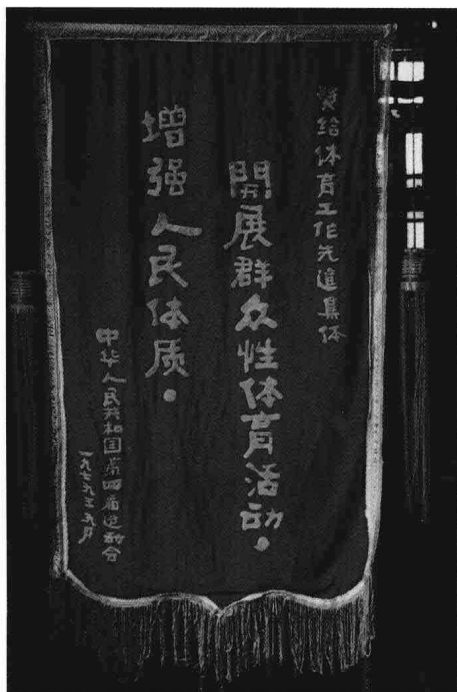 奖给体育工作先進集体
開展群众性体育活动。
增强人民体质。
中华人民共和国第四届运动会
一九七九年九月